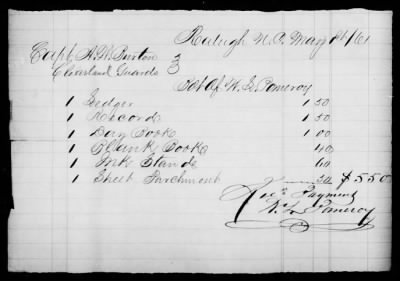 Raleigh N.C. May 18/61
Capt A.W. Burton
Cleveland Guards
Bot of W.L. Pomeroy
1 Ledger 1 50
1 Record 1 50
1 Day Book 1 00
1 Blank Book 40
1 Ink Stands 60
1 Sheet Parchment 50 $5.50
Recd Payment
W.L. Pomeroy